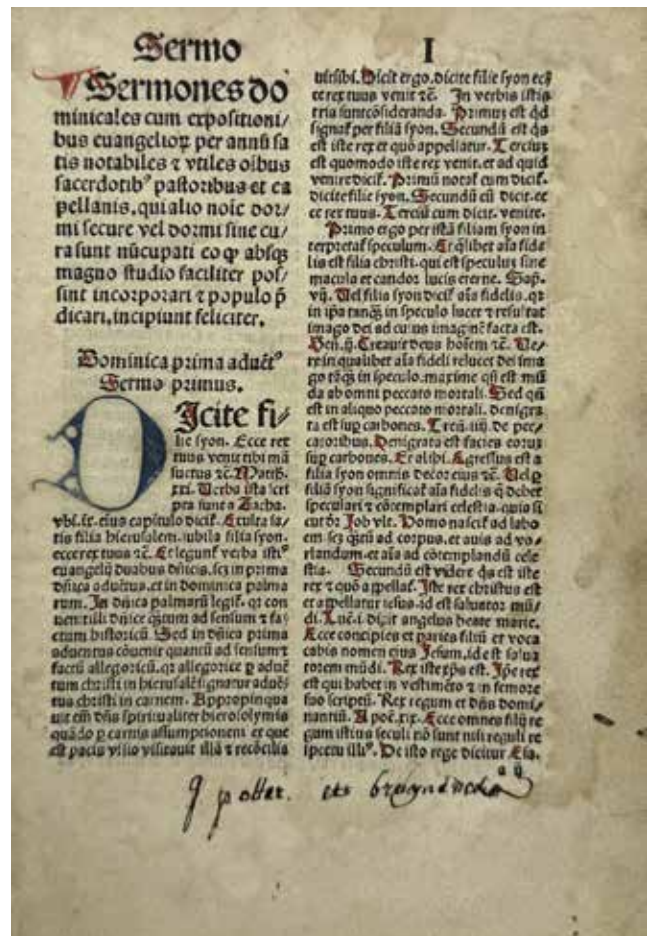 Sermo
I
Sermones do
minicales cum expositioni/
bus euangelioꝝ per annū sa
tis notabiles ⁊ vtiles oībus
sacerdotibꝰ pastoribus et ca
pellanis. qui alio noīe dor/
mi secure vel dormi sine cu/
ra sunt nūcupati eo ꝙ absqꝫ
magno studio faciliter pos/
sint incorporari ⁊ populo p̄
dicari. incipiunt feliciter.
Dominica prima aduētꝰ
Sermo primus.
DIcite fi/
lie syon. Ecce rex
tuus venit tibi mā
suetus ⁊c̄. Math.
xxi. Verba ista scri
pta sunt a Zacha.
vbi. ix. eius capitulo dicit̄. Exulta sa/
tis filia hierusalem. iubila filia syon.
ecce rex tuus ⁊c̄. Et legunt̄ verba istiꝰ
euangelij duabus dn̄icis. scꝫ in prima
dn̄ica aduētus. et in dominica palma
rum. In dn̄ica palmarū legit̄. qꝛ con
uenit illi dn̄ice qꝫtum ad sensum ⁊ fa/
ctum historicū. Sed in dn̄ica prima
aduentus cōuenit quantū ad sensum ⁊
factū allegoricū. qꝛ allegorice ꝑ aduē
tum christi in hierusalē signatur aduē/
tus christi in carnem. Appropinqua
uit em̄ dn̄s spiritualiter hierosolymis
quādo ꝑ carnis assumptionem ea que
est pacis visio visitauit illā ⁊ recōcilia
uit sibi. Dicit ergo. dicite filie syon ecc̄
ce rex tuus venit ⁊c̄. In verbis istis
tria sunt cōsideranda. Primuꝫ est qd̄
signat̄ per filiā syon. Secundū est qs̄
est iste rex et quō appellatur. Tercius
est quomodo iste rex venit. et ad quid
venire dicit̄. Primū notat̄ cum dicit̄.
dicite filie syon. Secundū cū dicit. ec
ce rex tuus. Terciū cum dicit. venite.
Primo ergo per istā filiam syon in
terpretat̄ speculum. Et qͥlibet aīa fide
lis est filia christi. qui est speculuꝫ sine
macula et candor lucis eterne. Sap.
vij. Vel filia syon dicit̄ aīa fidelis. qꝛ
in ip̄a tanqꝫ in speculo lucet ⁊ resultat
imago dei ad cuius imaginē facta est.
Gen̄. ij. Creauit deus hoīem ⁊c̄. Ve/
re in qualibet aīa fideli relucet dei ima
go tāqꝫ in speculo. maxime qn̄ est mū
da ab omni peccato mortali. Sed qn̄
est in aliquo peccato mortali. denigra
ta est suꝑ carbones. Tren̄. iiij. de pec/
catoribus. Denigrata est facies eorum
suꝑ carbones. Et alibi. Egressus est a
filia syon omnis decor eius ⁊c̄. Vel ꝑ
filiā syon significat̄ aīa fidelis q̄ debet
speculari ⁊ cōtemplari celestia. quia si
cut dr̄ Job vlt. Homo nascit̄ ad labo
rem scꝫ qꝫtū ad corpus. et auis ad vo/
landum. et aīa ad cōtemplandū cele
stia. Secundū est videre qs̄ est iste
rex ⁊ quō appellat̄. Iste rex christus est
et appellatur iesus. id est saluator mū/
di. Luc̄. i. dixit angelus beate marie.
Ecce concipies et paries filiū et voca
cabis nomen eius Jesum. id est salua
torem mūdi. Rex iste xp̄s est. Ip̄e rex
est qui habet in vestimēto ⁊ in femore
suo scriptū. Rex regum et dn̄s domi/
nantiū. Apoc̄. xix. Ecce omnes filij re
gum istius seculi nō sunt nisi reguli re
spectu illiꝰ. De isto rege dicitur Esa.
a ij